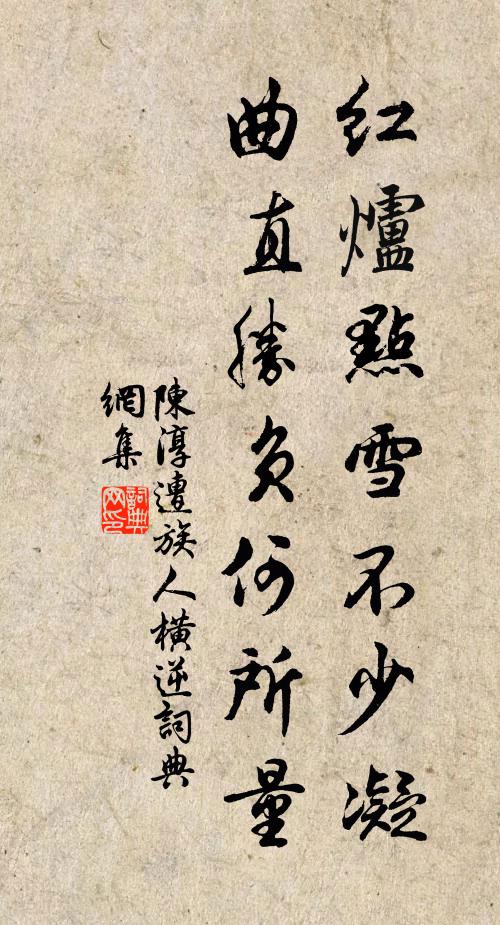 紅爐點雪不少凝
曲直勝負何所量
陳淳遭族人橫逆詞典
網集
詞典
网印